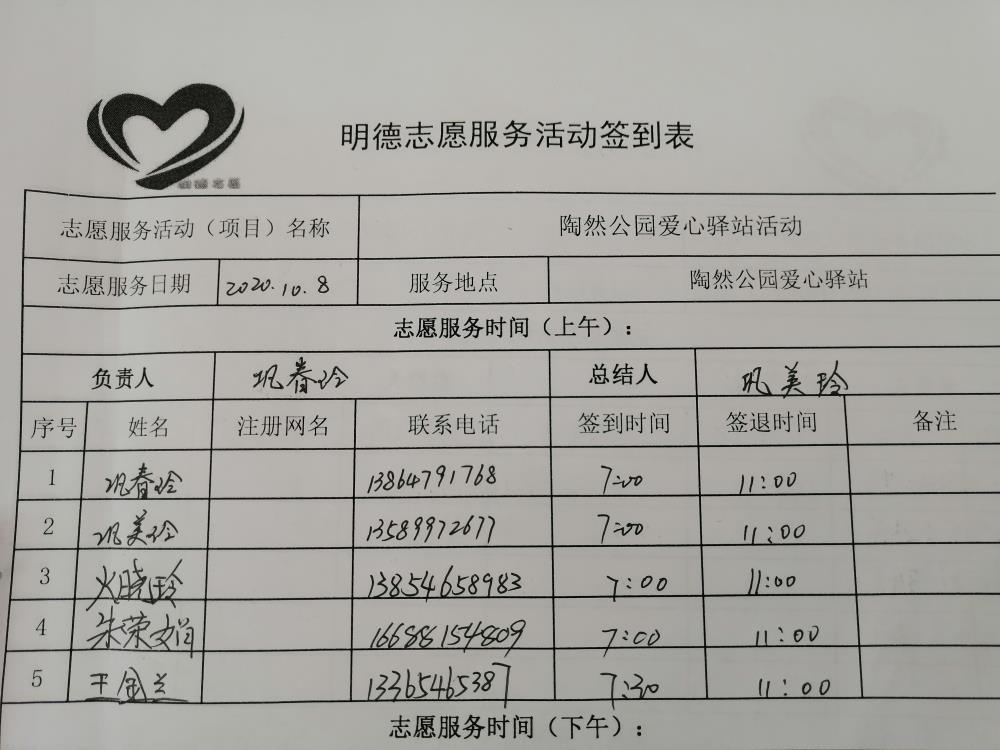 明德志愿
明德志愿服务活动签到表
志愿服务活动（项目）名称 陶然公园爱心驿站活动
志愿服务日期 2020.10.8 服务地点 陶然公园爱心驿站
志愿服务时间（上午）：
负责人 巩春玲 总结人 巩美玲
序号 姓名 注册网名 联系电话 签到时间 签退时间 备注
1 巩春玲 13864791768 7:00 11:00
2 巩美玲 13589972677 7:00 11:00
3 火晓玲 13854658983 7:00 11:00
4 朱荣娟 166881154809 7:00 11:00
5 王金兰 13365465387 7:30 11:00
志愿服务时间（下午）：